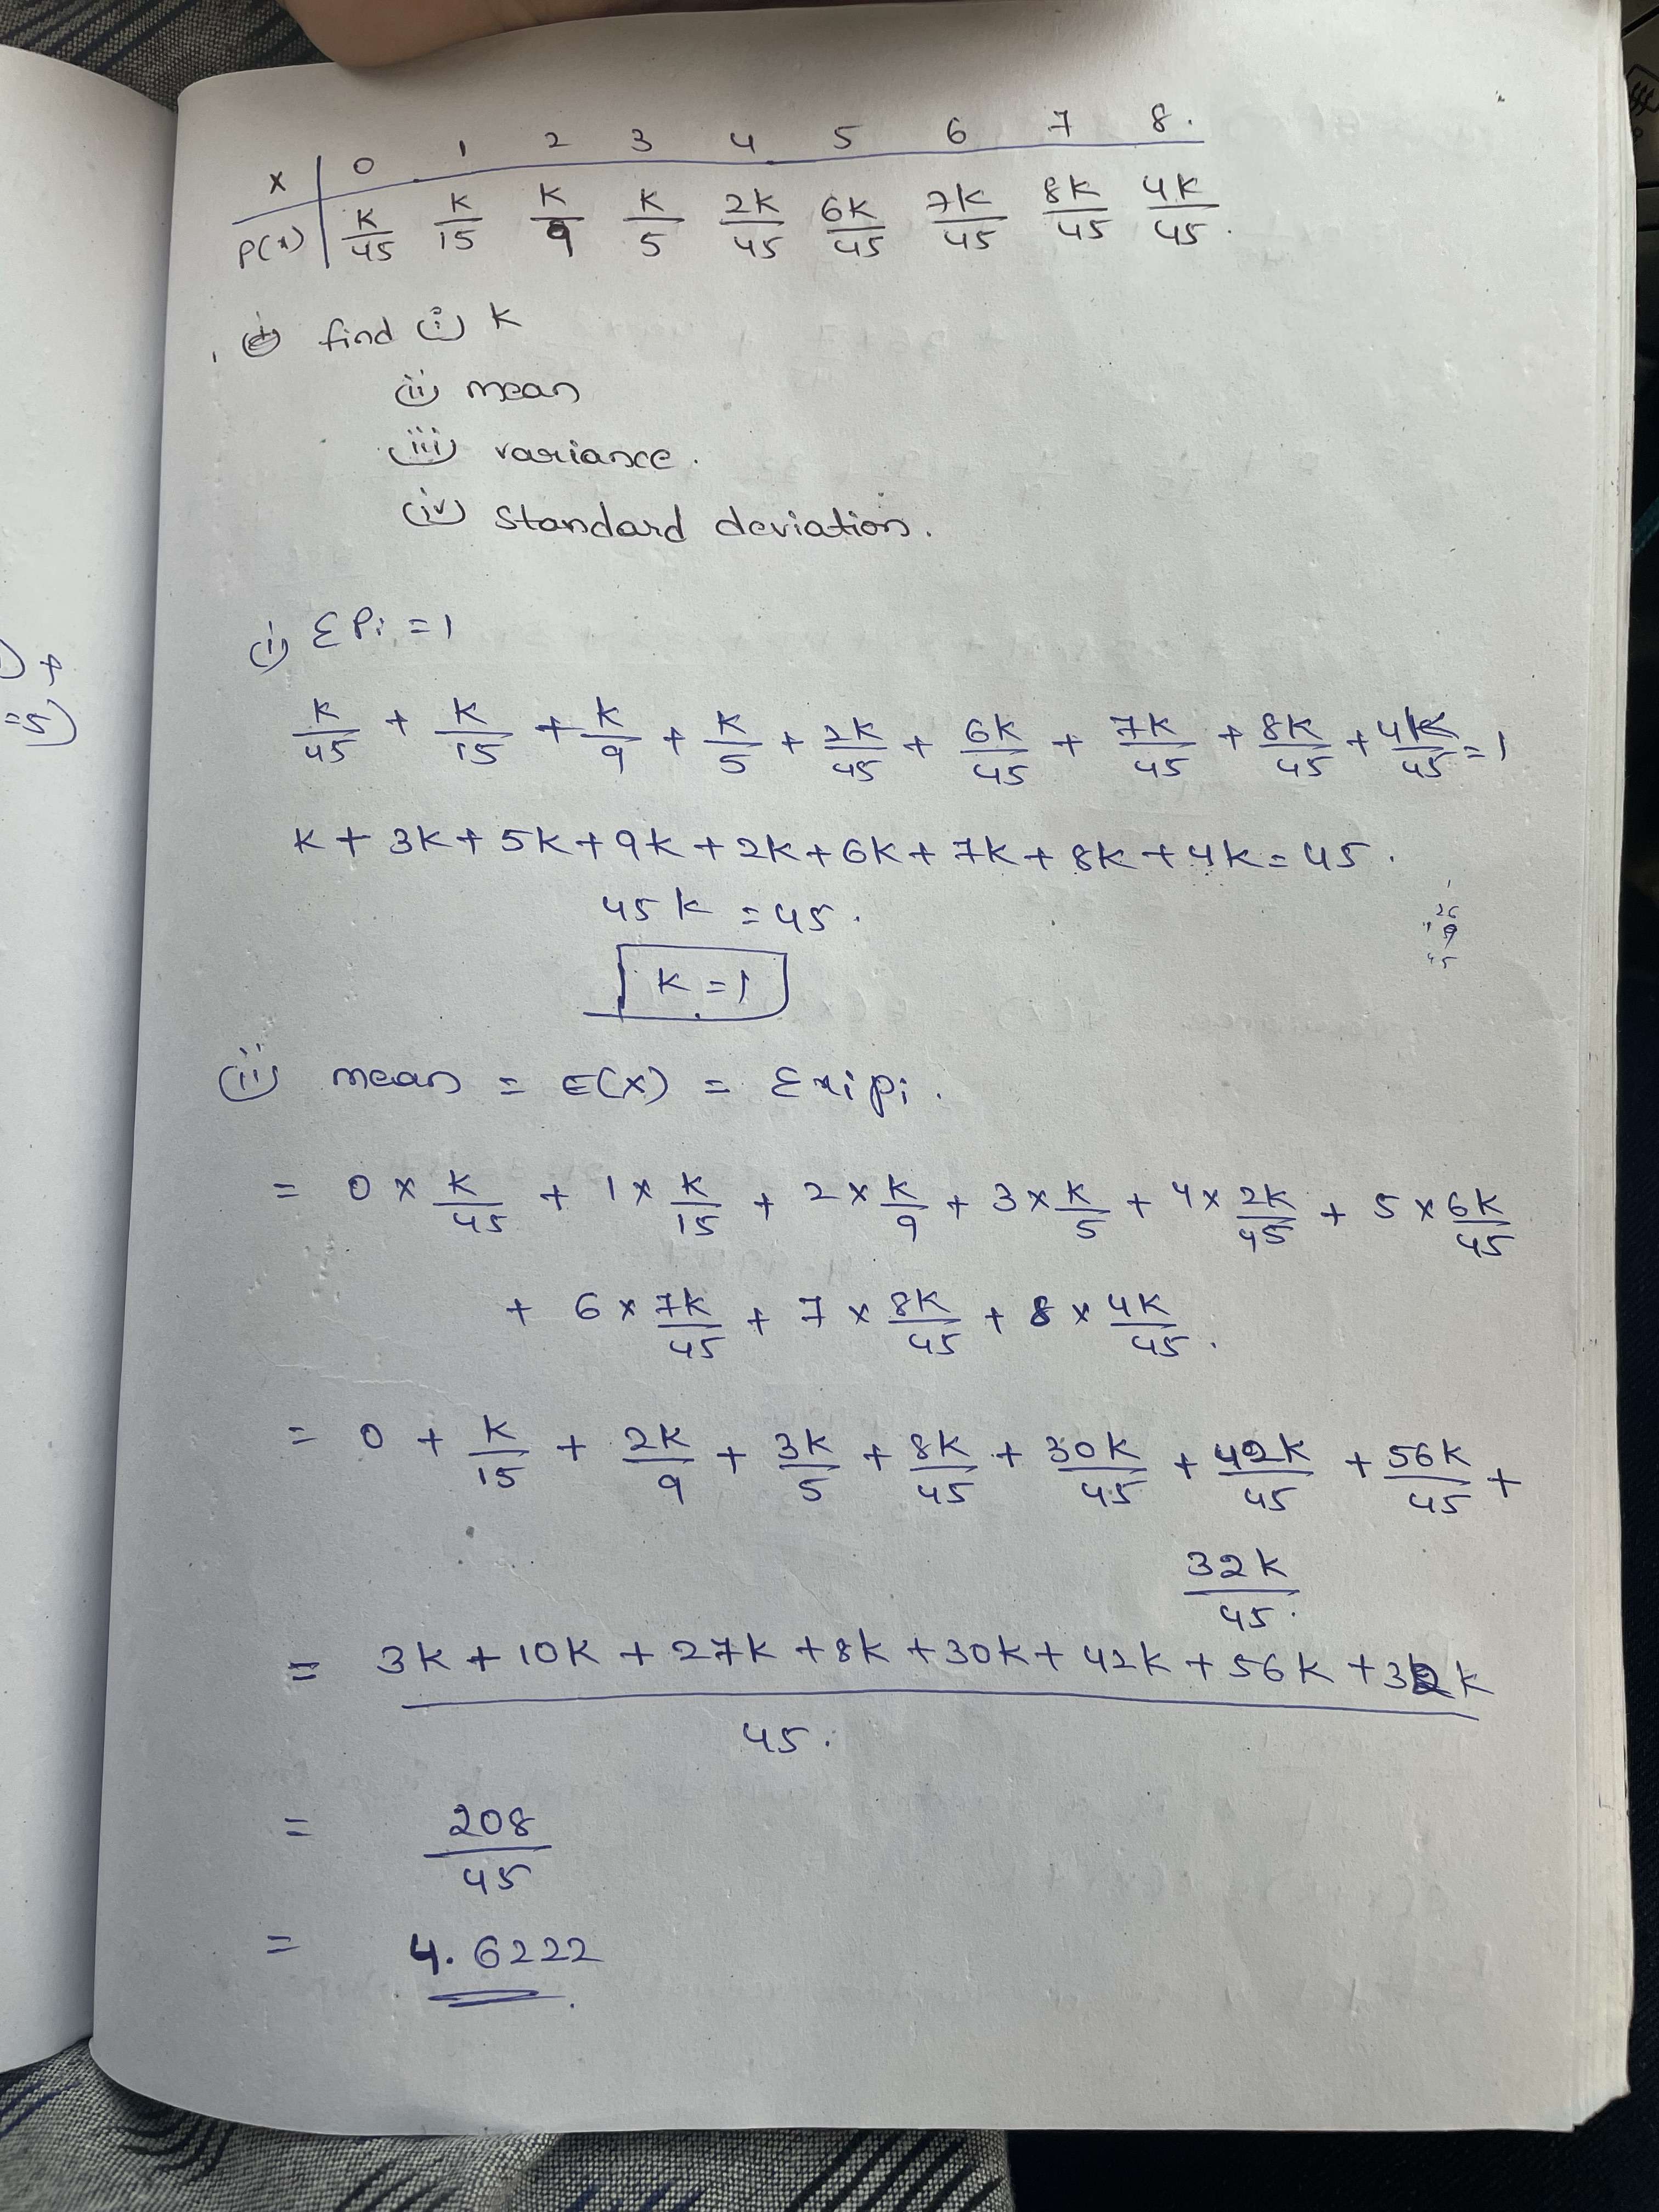 x | 0 1 2 3 4 5 6 7 8.
P(x) | K/45 K/15 K/9 K/5 2K/45 6K/45 7K/45 8K/45 4K/45.
find (i) K
(ii) mean
(iii) variance.
(iv) standard deviation.
(i) ΣPi = 1
) +
K/45 + K/15 + K/9 + K/5 + 2K/45 + 6K/45 + 7K/45 + 8K/45 + 4K/45 = 1
=5)
K + 3K + 5K + 9K + 2K + 6K + 7K + 8K + 4K = 45.
45K = 45.
K = 1
(ii) mean = E(X) = Σxipi.
= 0 × K/45 + 1 × K/15 + 2 × K/9 + 3 × K/5 + 4 × 2K/45 + 5 × 6K/45
+ 6 × 7K/45 + 7 × 8K/45 + 8 × 4K/45.
= 0 + K/15 + 2K/9 + 3K/5 + 8K/45 + 30K/45 + 42K/45 + 56K/45 +
32K/45.
= 3K + 10K + 27K + 8K + 30K + 42K + 56K + 32K
45.
= 208/45
= 4.6222